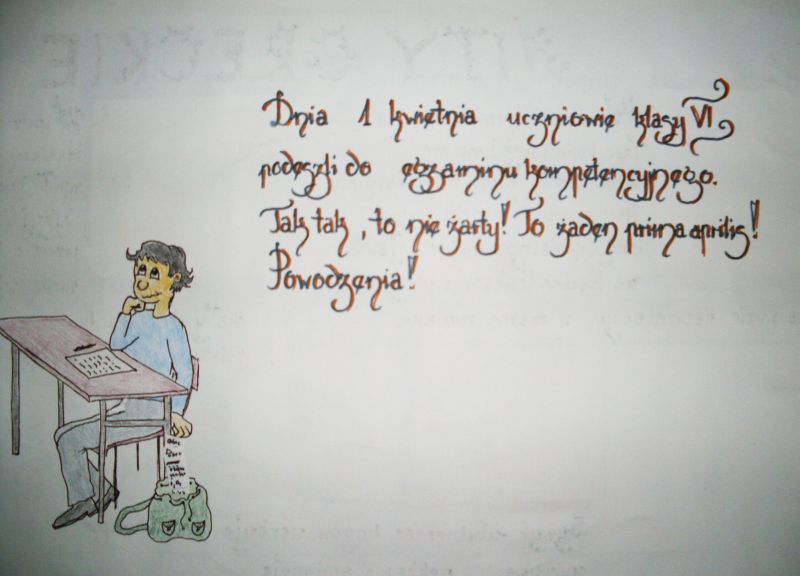 Dnia 1 kwietnia uczniowie klasy VI
podeszli do egzaminu kompetencyjnego.
Tak tak, to nie żarty! To żaden prima aprilis!
Powodzenia!